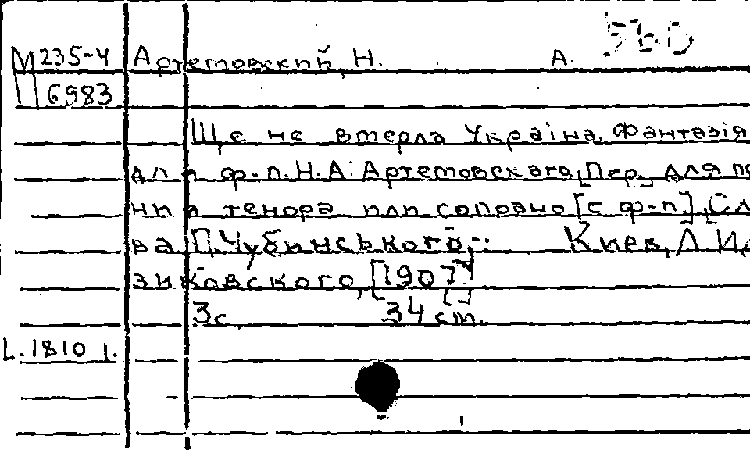 М 235-4 Артемовский, Н. А. 560
П 6983
Ще не вмерла Україна. Фантазія
для ф-п. Н.А. Артемовскаго, Пер. для
ния тенора или сопрано [с ф-п], Сл
ва П. Чубинського,: Киев, Л. И
зиковского, [1907]
3 с. 34 см.
L. 1810 1.